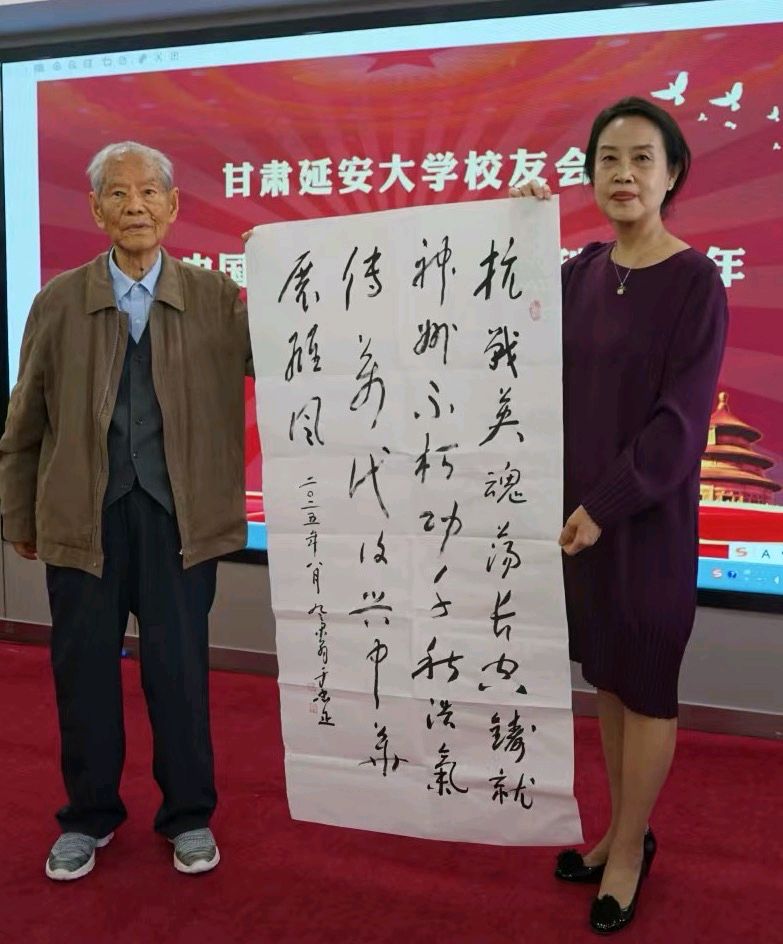 甘肃延安大学校友会
中国
年
抗戰英魂荡长空鑄就
神州不朽功千秋浩氣
傳万代復兴中华
展雄风
二〇二五年八月